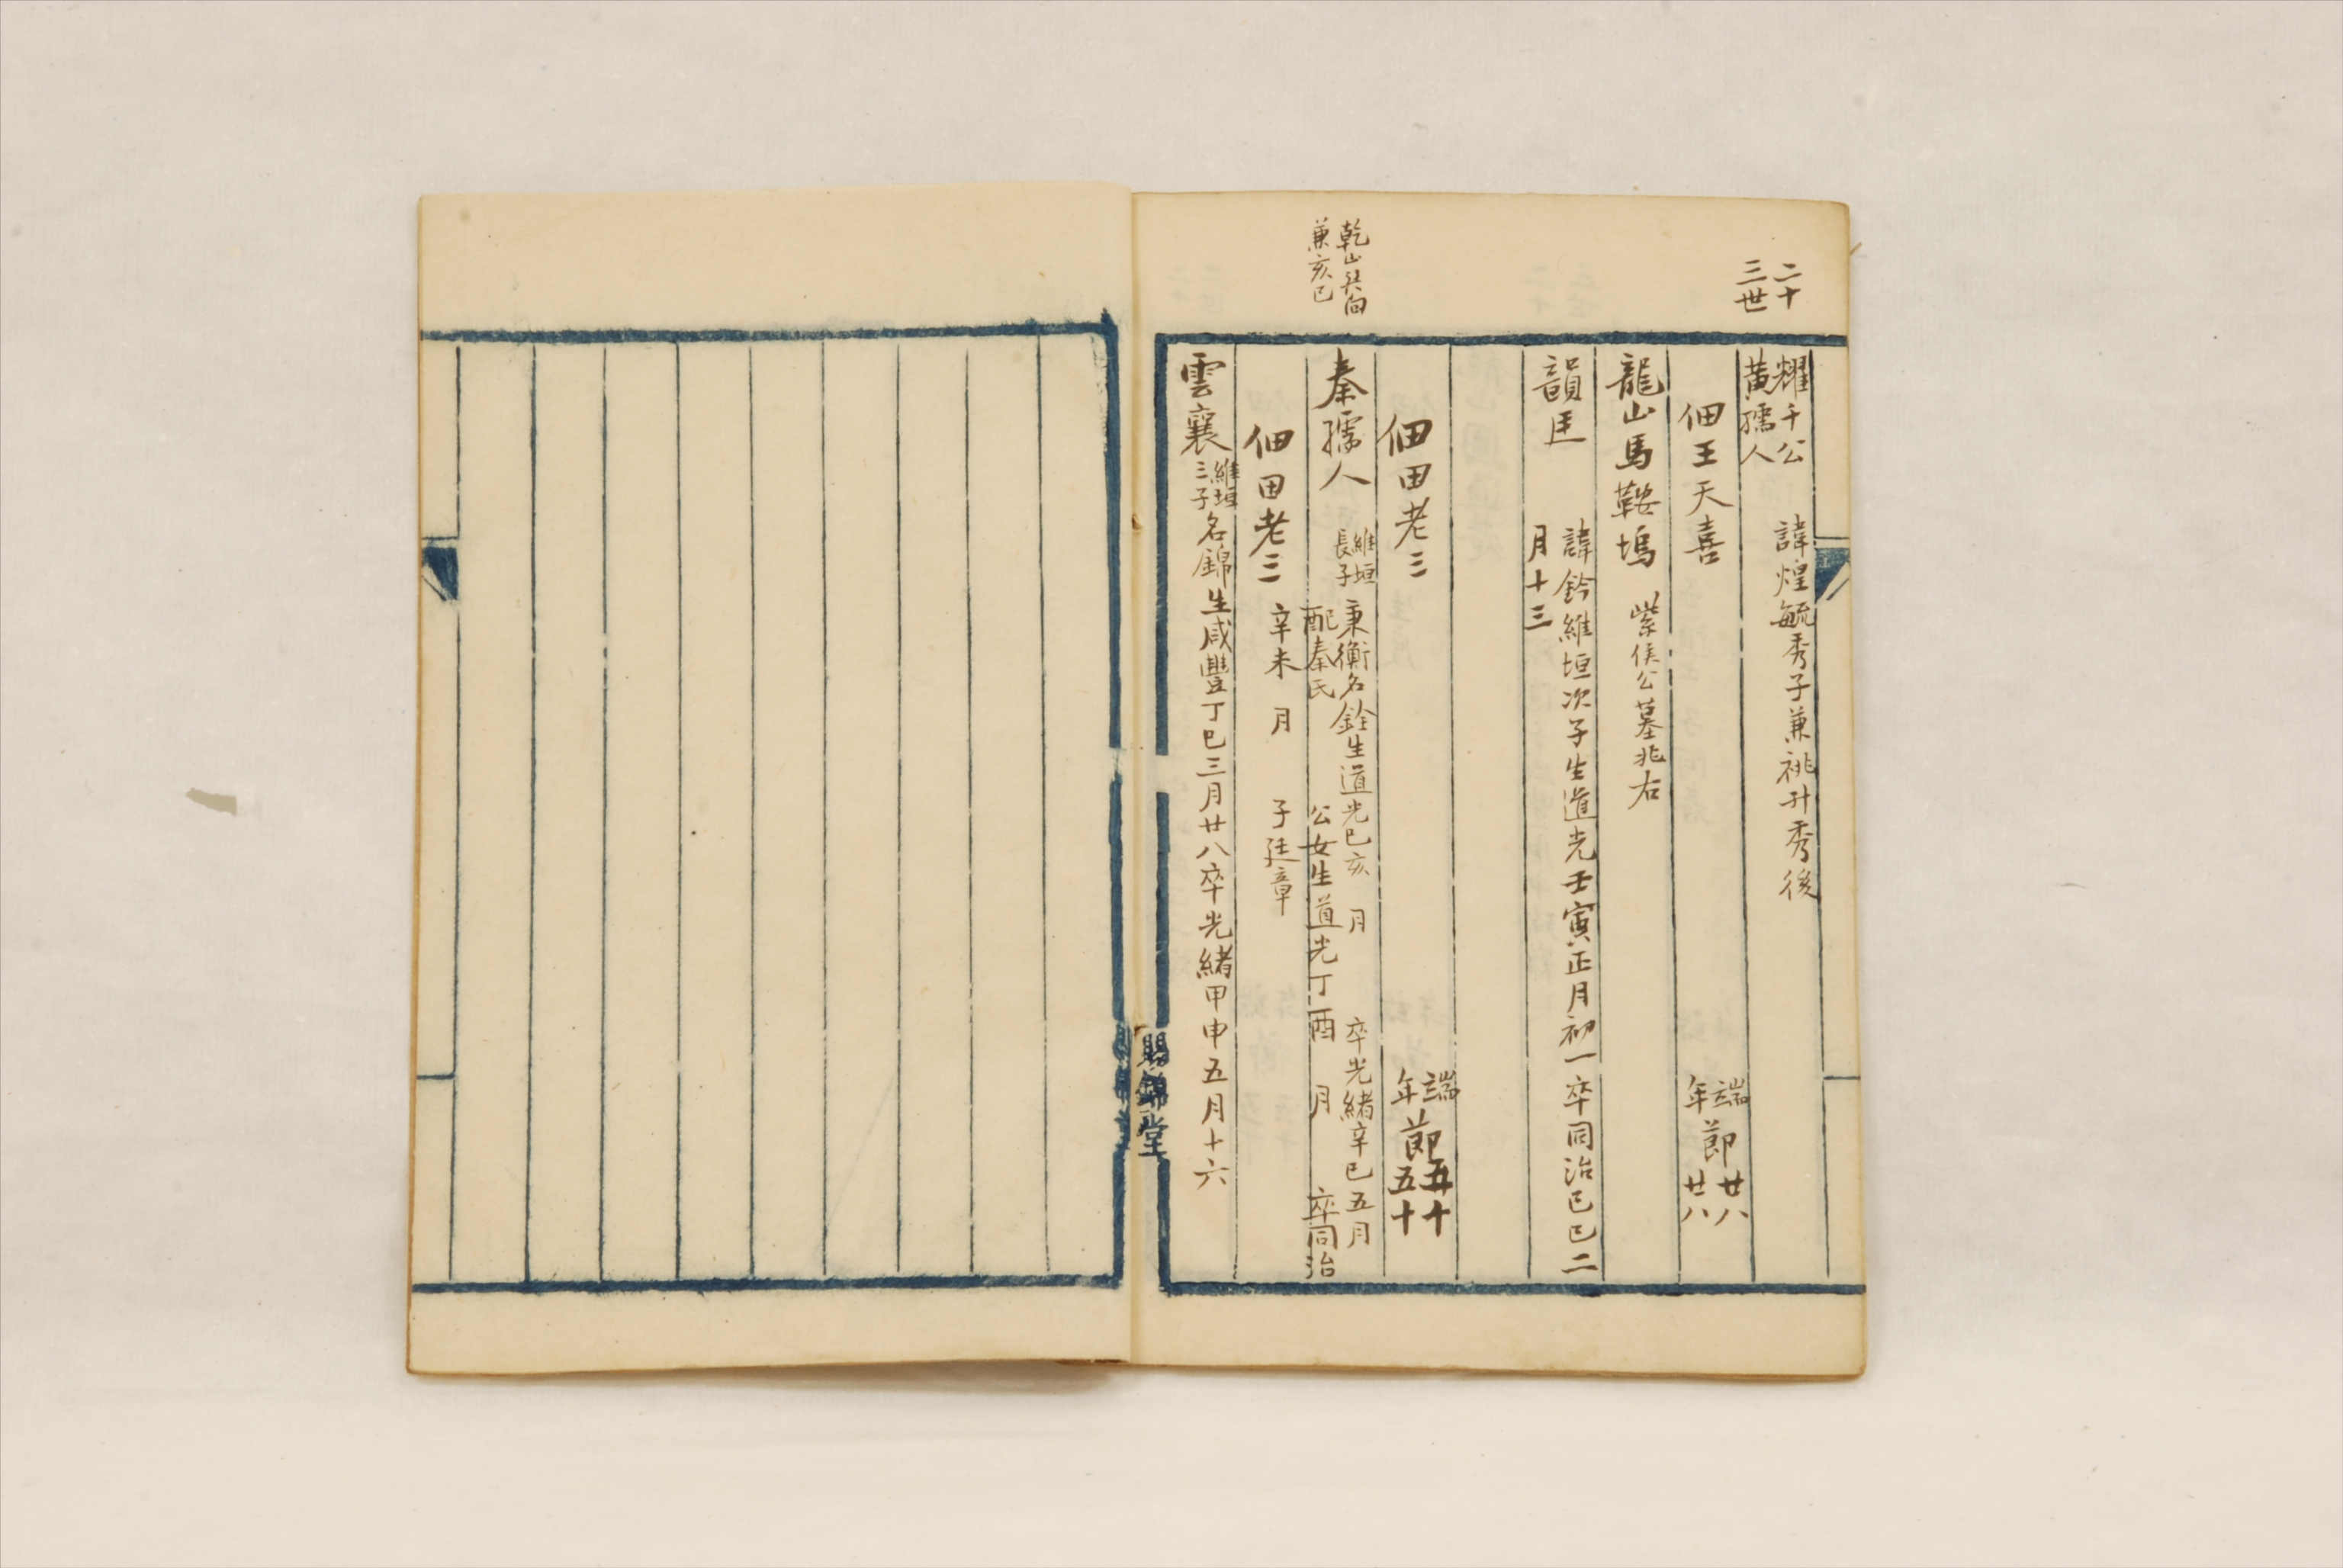 二十
三世
耀千公
黄孺人
諱煌毓秀子兼祧升秀後
佃王天喜
端
年
節
廿八
廿八
龍山馬鞍塢
紫侯公墓兆右
韻匡
諱鈐維垣次子生道光壬寅正月初一卒同治己巳二
月十三
佃田老三
端
年
節
五十
五十
乾山巽向
兼亥巳
秦孺人
維垣
長子
秉衡名銓生道光己亥 月 卒光緒辛巳五月
配秦氏 公女生道光丁酉 月 卒同治
佃田老三
辛未 月 子廷章
雲襄
維垣
三子
名錦生咸豐丁巳三月廿八卒光緒甲申五月十六
賜錦堂